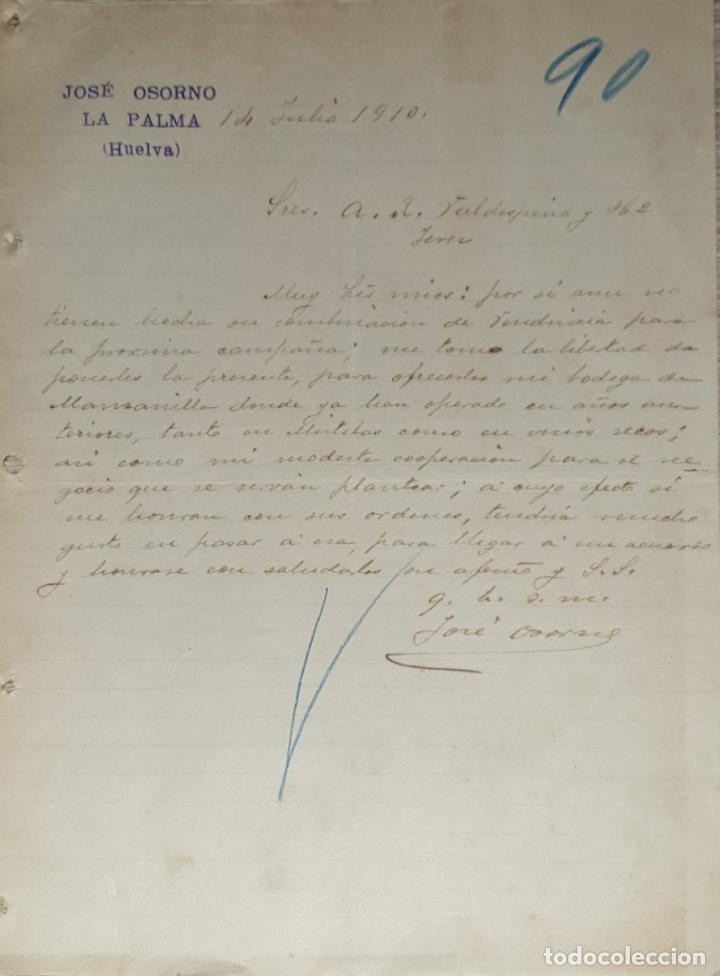 90
JOSÉ OSORNO
LA PALMA
(Huelva)
14 Julio 1910.
Sres. A. R. Valdespino y Hº
Jerez
Muy Srés mios: por si aun no
tienen hecha su combinacion de Vendimia para
la proxima campaña; me tomo la libertad de
ponerles la presente, para ofrecerles mi bodega de
Manzanilla donde ya han operado en años an-
teriores, tanto en Mistelas como en vinos secos;
asi como mi modesta cooperacion para el ne-
gocio que se sirvan plantear; á cuyo efecto si
me honran con sus ordenes, tendria mucho
gusto en pasar á esa, para llegar á un acuerdo
y honrase con saludarlos su afmo y S. S.
q. b. s. m.
José Osorno
todocoleccion